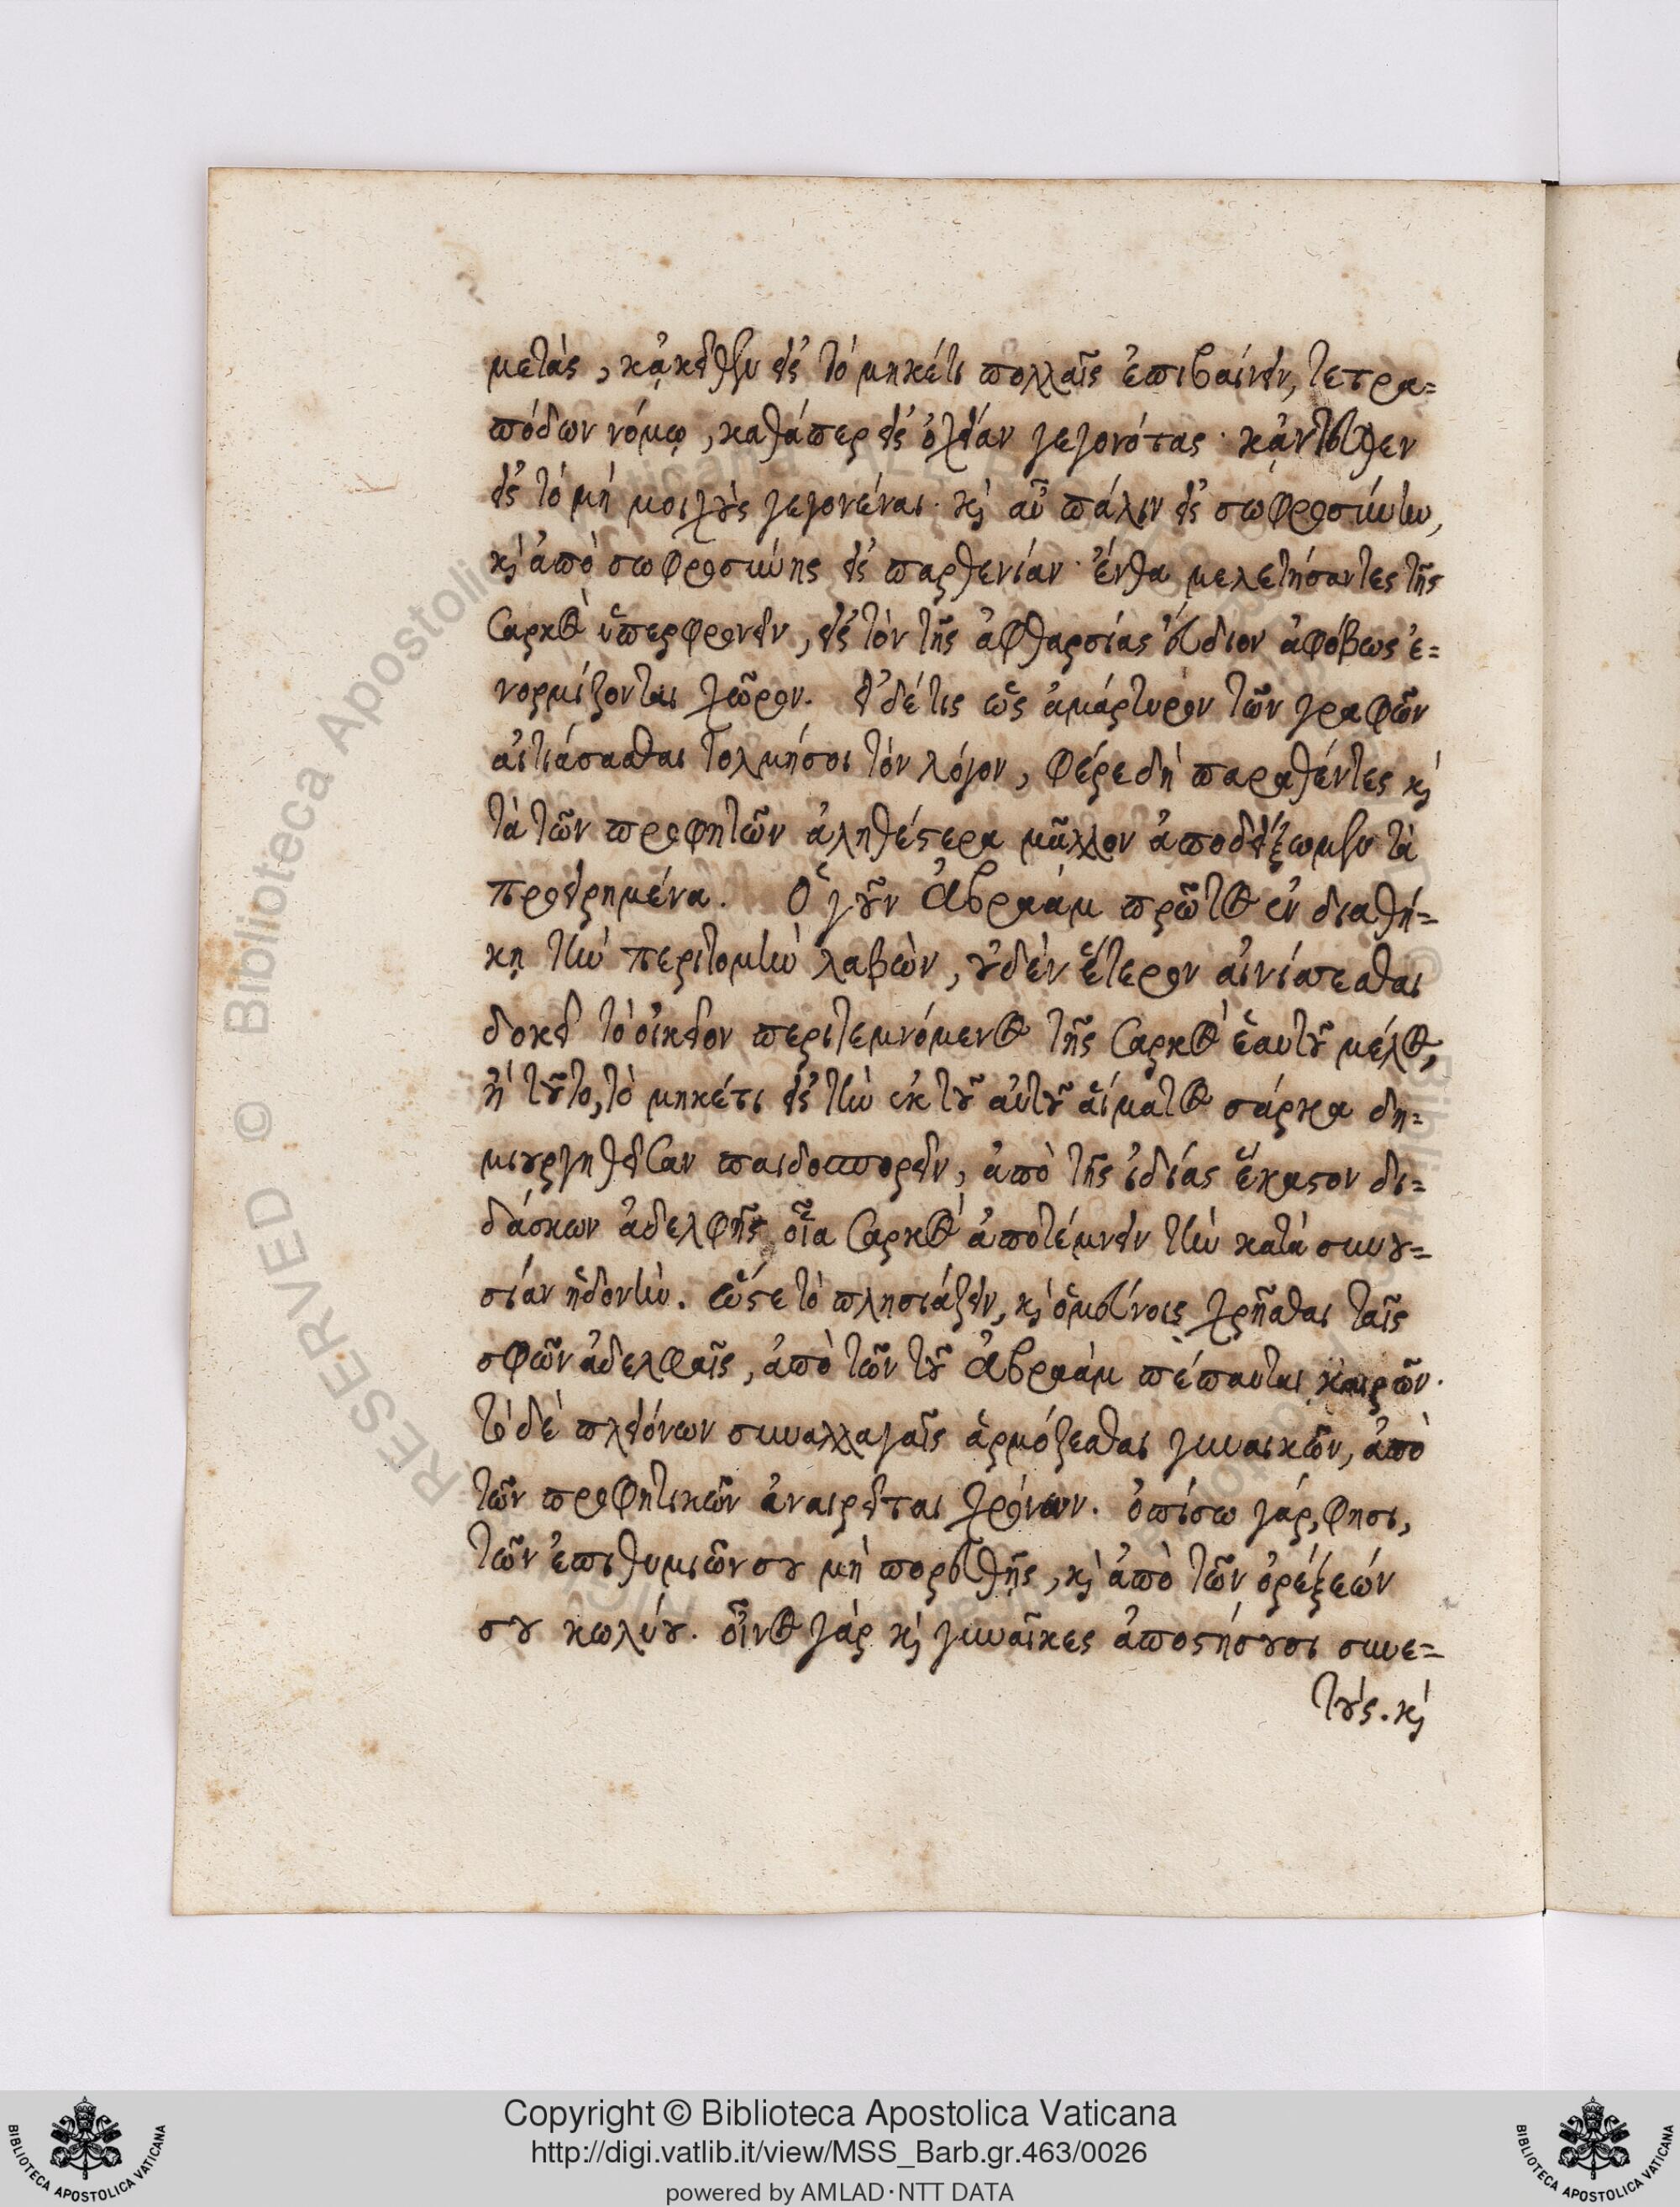 μετὰς, κἀκεῖθεν εἰς τὸ μηκέτι πολλαῖς ἐπιβαίνειν, τετρα=
πόδων νόμῳ, καθάπερ εἰς ὀχείαν γεγονότας· κἀντεῦθεν
εἰς τὸ μὴ μοιχοὺς γεγονέναι· καὶ αὖ πάλιν εἰς σωφροσύνην,
καὶ ἀπὸ σωφροσύνης εἰς παρθενίαν· ἔνθα μελετήσαντες τῆς
σαρκὸς ὑπερφρονεῖν, εἰς τὸν τῆς ἀφθαρσίας εὔδιον ἀφόβως ἐ=
νορμίζονται χῶρον. εἰ δέ τις ὡς ἀμάρτυρον τῶν γραφῶν
αἰτιάσασθαι τολμήσοι τὸν λόγον, φέρε δὴ παραθέντες καὶ
τὰ τῶν προφητῶν ἀληθέστερα μᾶλλον ἀποδείξωμεν τὰ
προειρημένα. Ὁ γοῦν Ἀβραὰμ πρῶτος ἐν διαθή=
κῃ τὴν περιτομὴν λαβὼν, οὐδὲν ἕτερον αἰνίττεσθαι
δοκεῖ τὸ οἰκεῖον περιτεμνόμενος τῆς σαρκὸς ἑαυτοῦ μέλος,
ἢ τοῦτο, τὸ μηκέτι εἰς τὴν ἐκ τοῦ αὐτοῦ αἵματος σάρκα δη=
μιουργηθεῖσαν παιδοσπορεῖν, ἀπὸ τῆς ἰδίας ἕκαστον δι=
δάσκων ἀδελφῆς οἷα σαρκὸς ἀποτέμνειν τὴν κατὰ συνου=
σίαν ἡδονήν. ὥστε τὸ πλησιάζειν, καὶ ὁμεύνοις χρῆσθαι ταῖς
σφῶν ἀδελφαῖς, ἀπὸ τῶν τοῦ Ἀβραὰμ πέπαυται καιρῶν.
τὸ δὲ πλειόνων συναλλαγαῖς ἁρμόζεσθαι γυναικῶν, ἀπὸ
τῶν προφητικῶν ἀναιρεῖται χρόνων. ὀπίσω γάρ, φησι,
τῶν ἐπιθυμιῶν σου μὴ πορευθῇς, καὶ ἀπὸ τῶν ὀρέξεών
σου κωλύου. οἶνος γὰρ καὶ γυναῖκες ἀποστήσουσι συνε=
τούς. καὶ
Copyright © Biblioteca Apostolica Vaticana
http://digi.vatlib.it/view/MSS_Barb.gr.463/0026
powered by AMLAD·NTT DATA
BIBLIOTECA APOSTOLICA VATICANA
BIBLIOTECA APOSTOLICA VATICANA